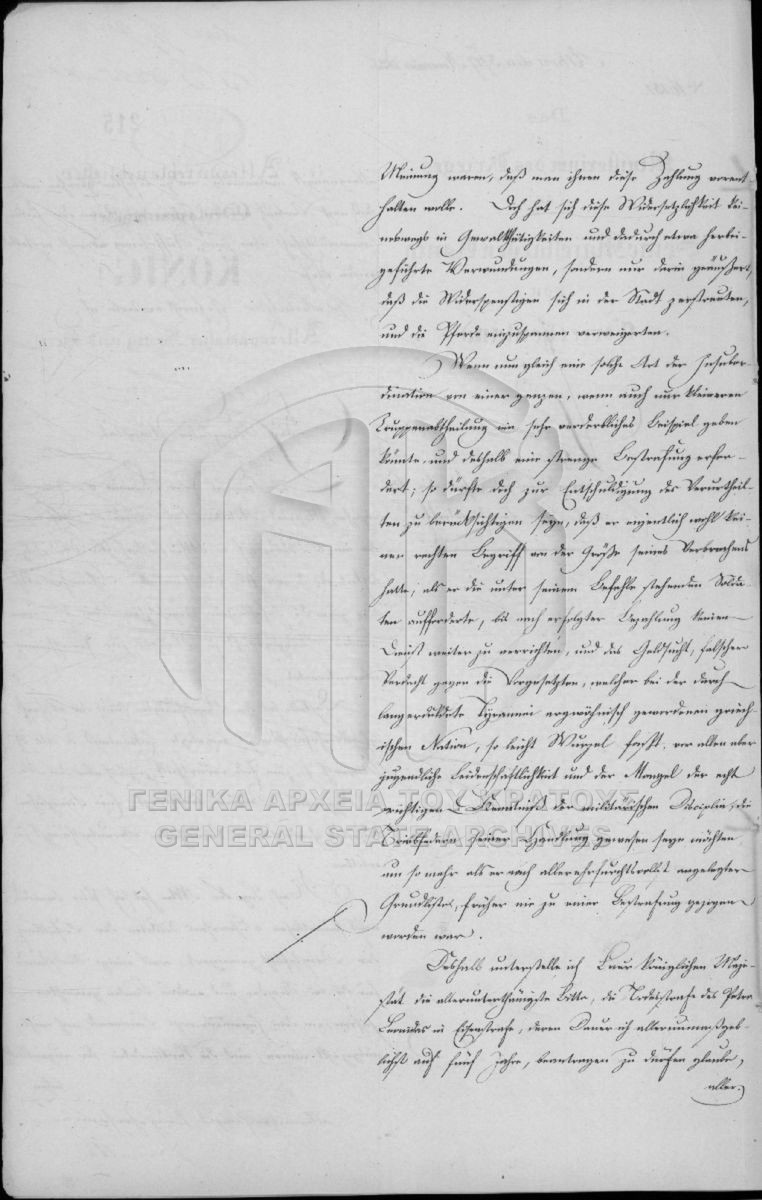 Meinung waren, daß man ihnen diese Zahlung vorent-
halten wolle. Doch hat sich diese Widersetzlichkeit kei-
neswegs in Gewaltthätigkeiten und dadurch etwa herbei-
geführte Verwundungen, sondern nur darin geäußert,
daß die Widerspenstigen sich in der Stadt zerstreuten,
und die Pferde einzuspannen verweigerten.
Wenn nun gleich eine solche Art der Insubor-
dination von einer ganzen, wenn auch nur kleineren
Truppenabtheilung ein sehr verderbliches Beispiel geben
könnte, und deshalb eine strenge Bestrafung erfor-
dert; so dürfte doch zur Entschuldigung des Verurtheil-
ten zu berücksichtigen seyn, daß er eigentlich wohl kei-
nen rechten Begriff von der Größe seines Verbrechens
hatte, als er die unter seinem Befehle stehenden Solda-
ten aufforderte, bis nach erfolgter Bezahlung keinen
Dienst weiter zu verrichten, und das Geldsucht, falscher
Verdacht gegen die Vorgesetzten, welcher bei der durch
langerduldete Tyrannei argwöhnisch gewordenen griech-
ischen Nation, so leicht Wurzel faßt, vor allen aber
jugendliche Leidenschaftlichkeit und der Mangel der echt
richtigen Kenntniß der militärischen Disciplin, die
Triebfedern seiner Handlung gewesen seyn möchten
um so mehr als er nach allerehrfurchtsvollst angelegter
Grundliste, früher nie zu einer Bestrafung gezogen
worden war.
Deshalb unterstelle ich Euer Königlichen Maje-
stät die allerunterthänigste Bitte, die Todesstrafe des Petro
in Eisenstrafe, deren Dauer ich allerunmaßgeb-
lichst auf fünf Jahre, beantragen zu dürfen glaube,
aller-
ΓΕΝΙΚΑ ΑΡΧΕΙΑ ΤΟΥ ΚΡΑΤΟΥΣ
GENERAL STATE ARCHIVES